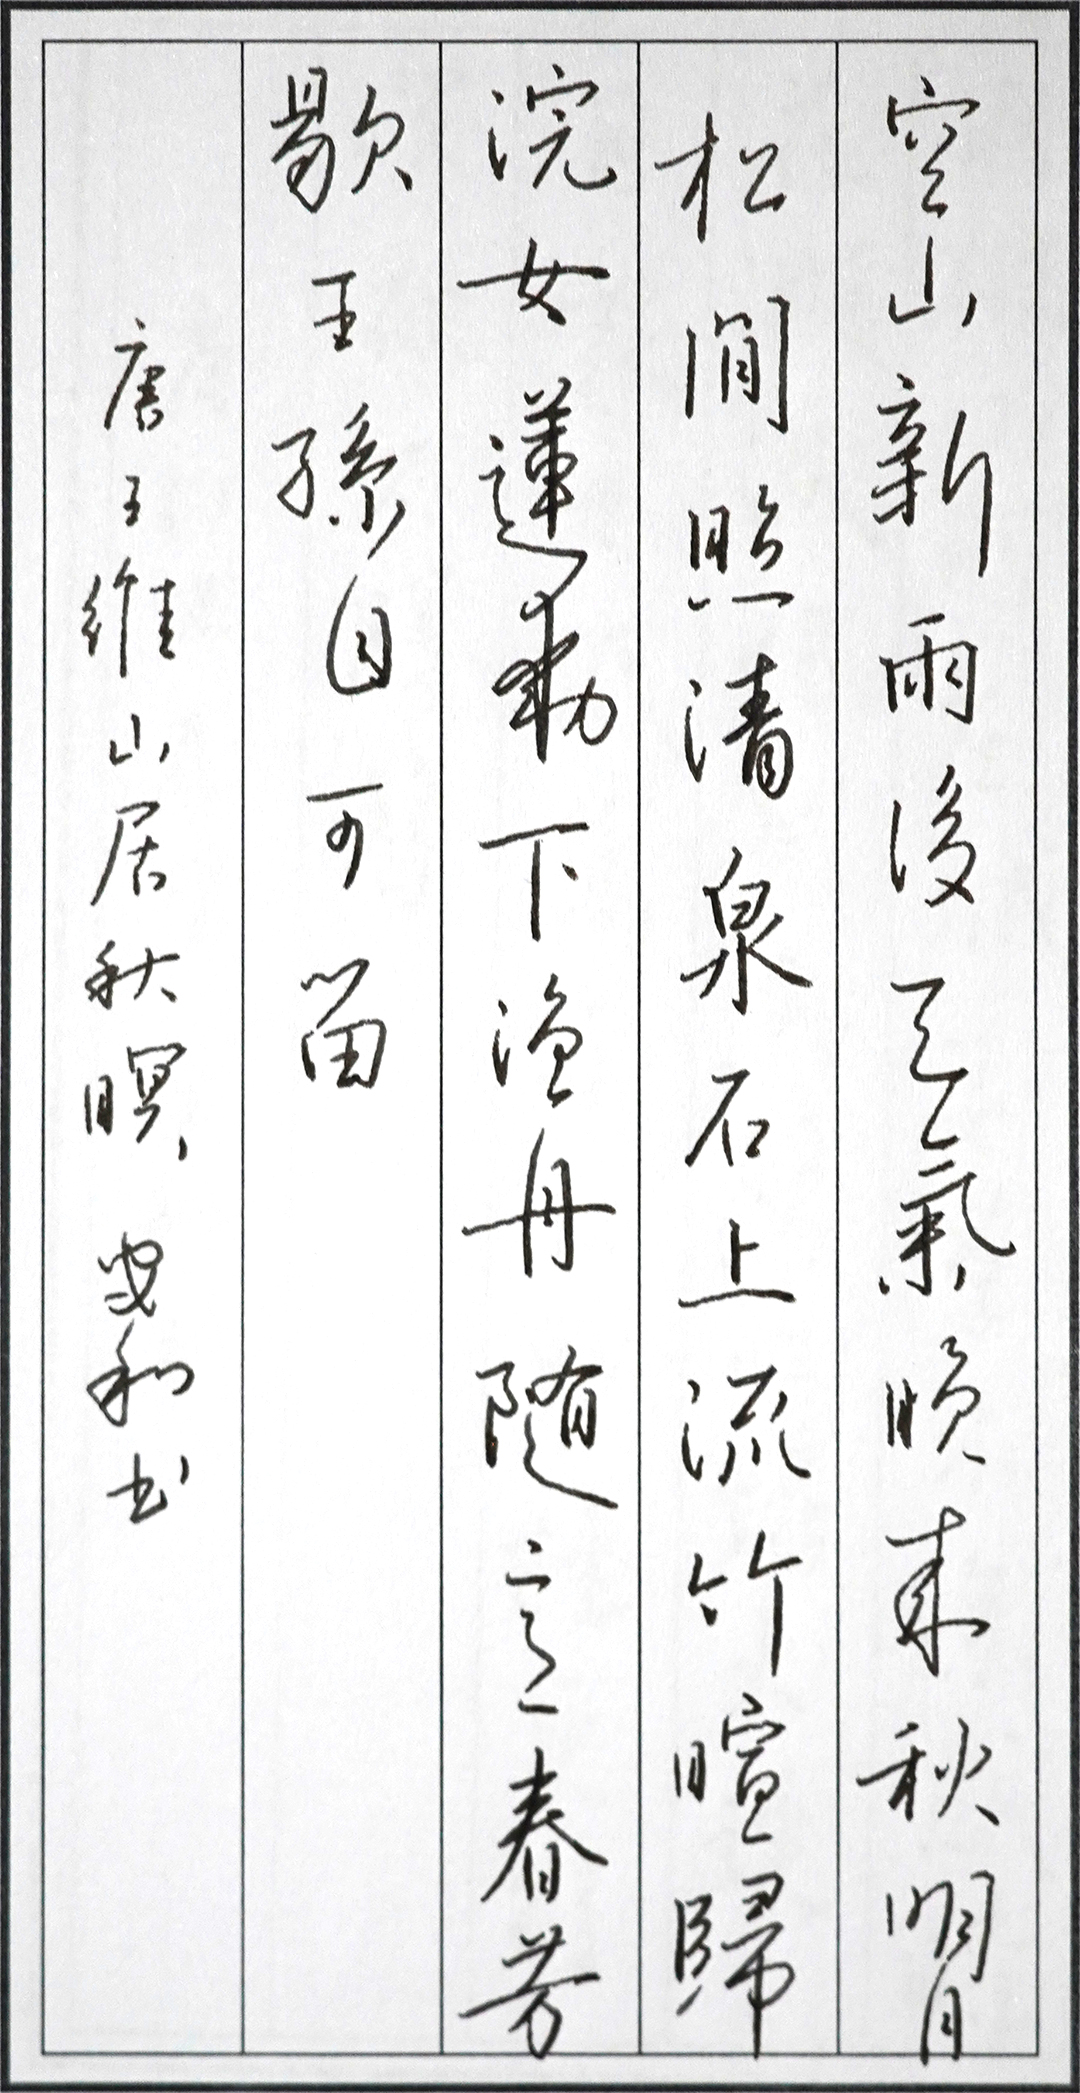 空山新雨後天氣晚來秋明月
松間照清泉石上流竹喧歸
浣女蓮動下漁舟隨意春芳
歇王孫自可留
唐王維山居秋暝 和书